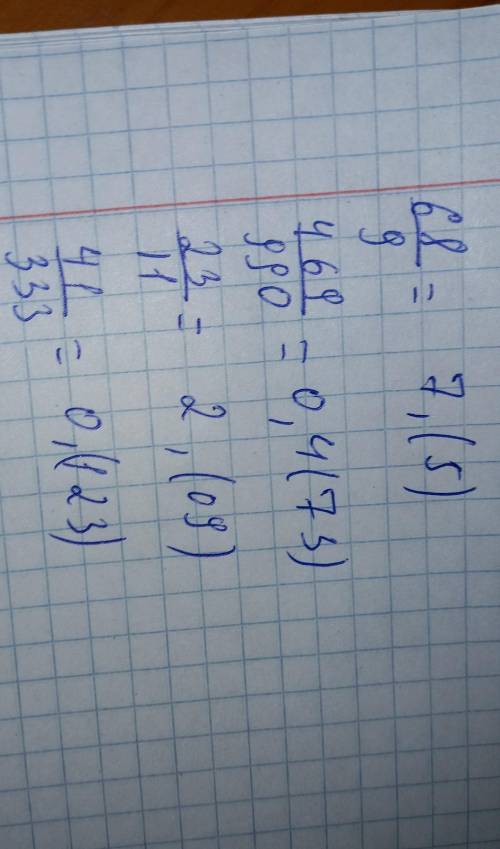 68/9 = 7,(5)
469/990 = 0,4(73)
23/11 = 2,(09)
41/333 = 0,(123)